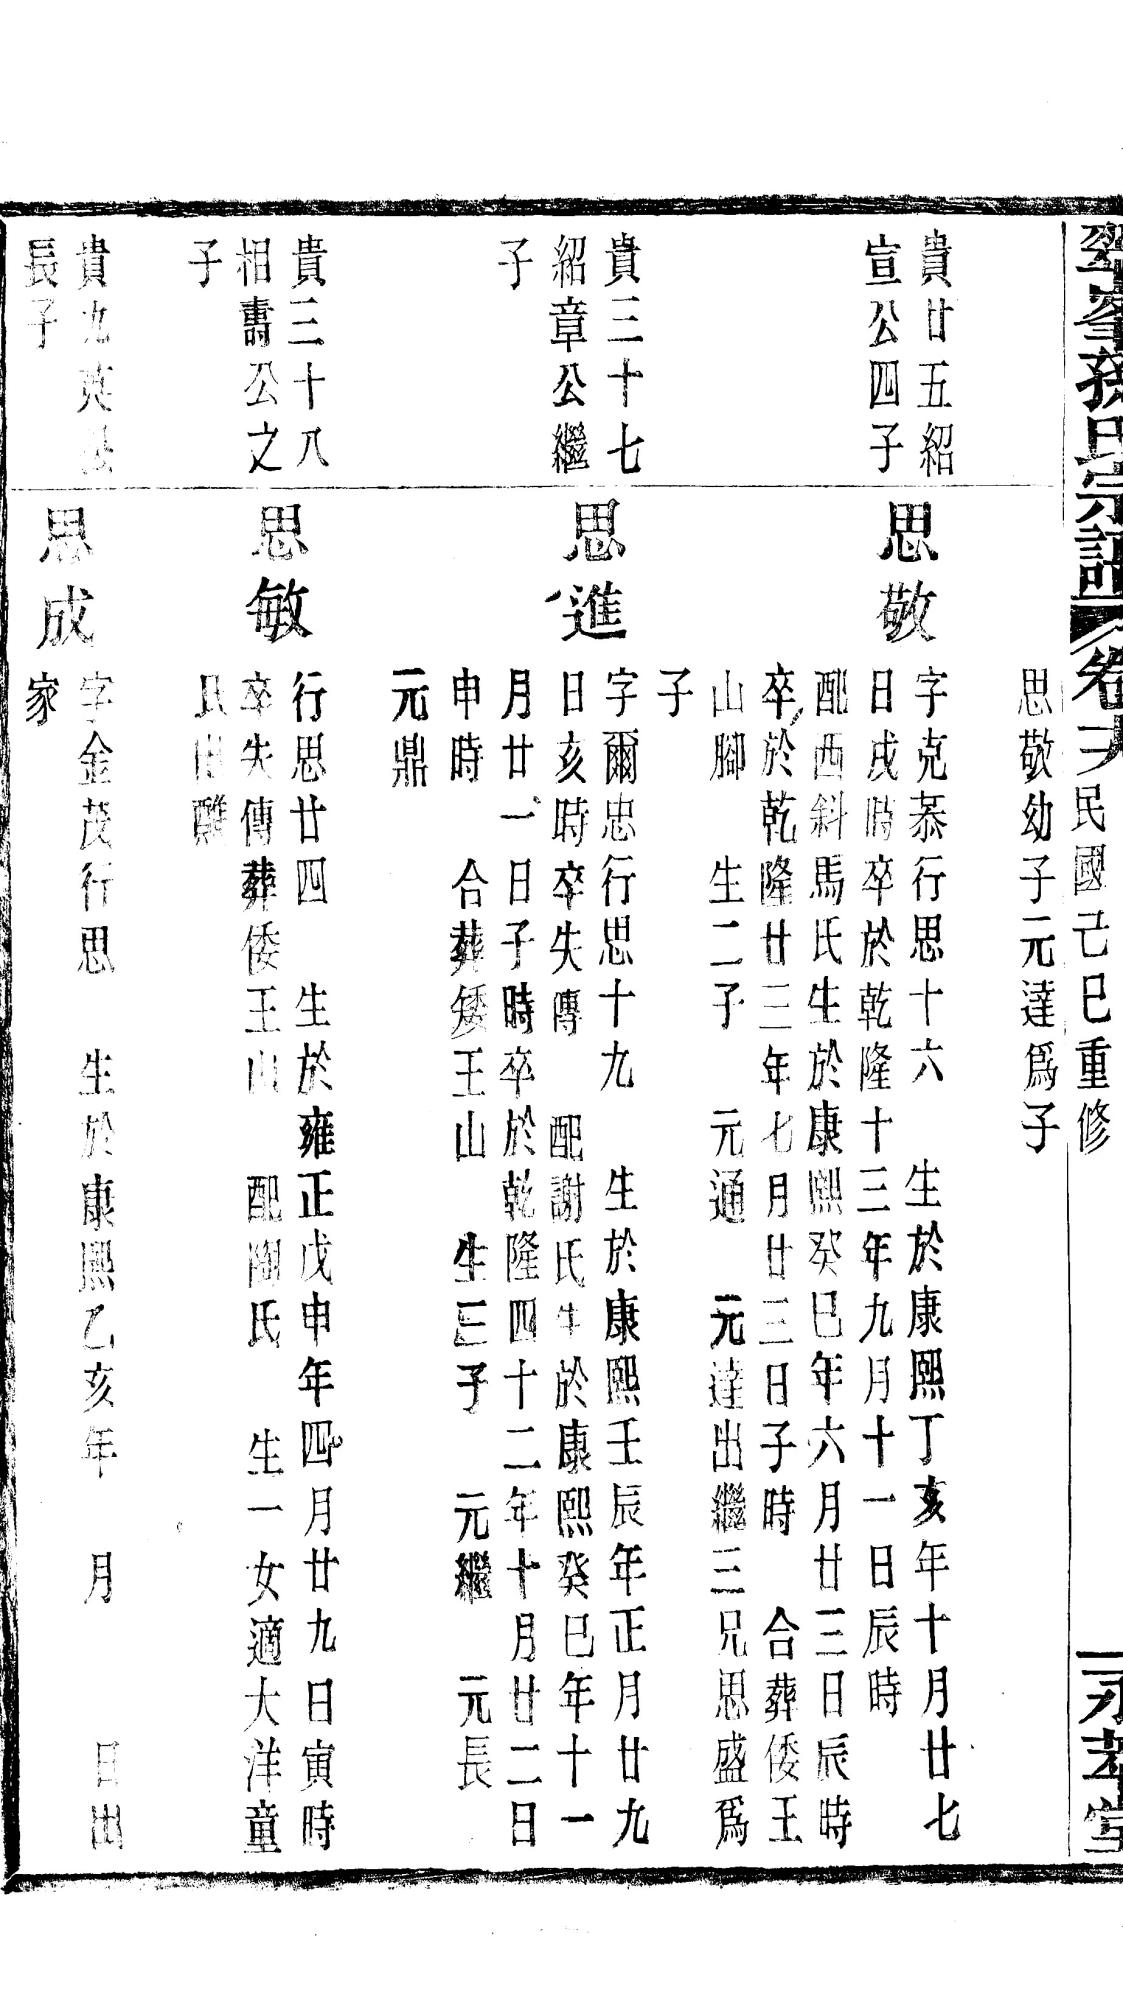 孫氏宗譜 卷 民國己巳重修
思敬幼子元達爲子
貴廿五紹
宣公四子
思敬
字克恭行思十六 生於康熙丁亥年十月廿七
日戌時卒於乾隆十三年九月十一日辰時
配西斜馬氏生於康熙癸巳年六月廿三日辰時
卒於乾隆廿三年七月廿三日子時 合葬倭王
山腳 生二子 元通 元達出繼三兄思盛爲
子
貴三十七
紹章公繼
子
思進
字爾忠行思十九 生於康熙壬辰年正月廿九
日亥時卒失傳 配謝氏生於康熙癸巳年十一
月廿一日子時卒於乾隆四十二年十月廿二日
申時 合葬矮王山 生三子 元繼 元長
元鼎
貴三十八
相壽公之
子
思敏
行思廿四 生於雍正戊申年四月廿九日寅時
卒失傳葬倭王山 配陶氏 生一女適大洋童
貴九英公
長子
思成
字金茂行思 生於康熙乙亥年 月 日出
家